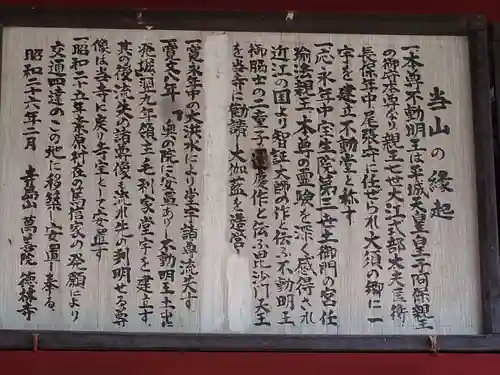 当山の縁起
一本尊不動明王は平城天皇皇子阿保親王
の御守本尊なり親王七世大江式部大夫匡衡
長保年中尾張守に任ぜられ大須の郷に一
宇を建立不動堂と称す
一応永年中宝生院第三世王御門の宮任
瑜法親王本尊の霊験を深く感得され
近江の国より智証大師の作と伝ふ不動明王
御脇士の二童子 慶作と伝ふ毘沙門天王
を当寺に勧請し大伽藍を造営
一寛永年中の大洪水により堂宇諸尊流失す
一寛文八年 奥の院に安置ありし不動明王土出
現堀洞九年領主毛利家堂宇を建立す
其の後流失の諸尊後も流れ先の判明せる尊
像は当寺に戻り寺宝として安置す
一昭和二十五年 村在の 信家の発願により
交通四達のこの地に移築し安置し奉る
昭和二十六年二月 山 萬善院 徳 寺